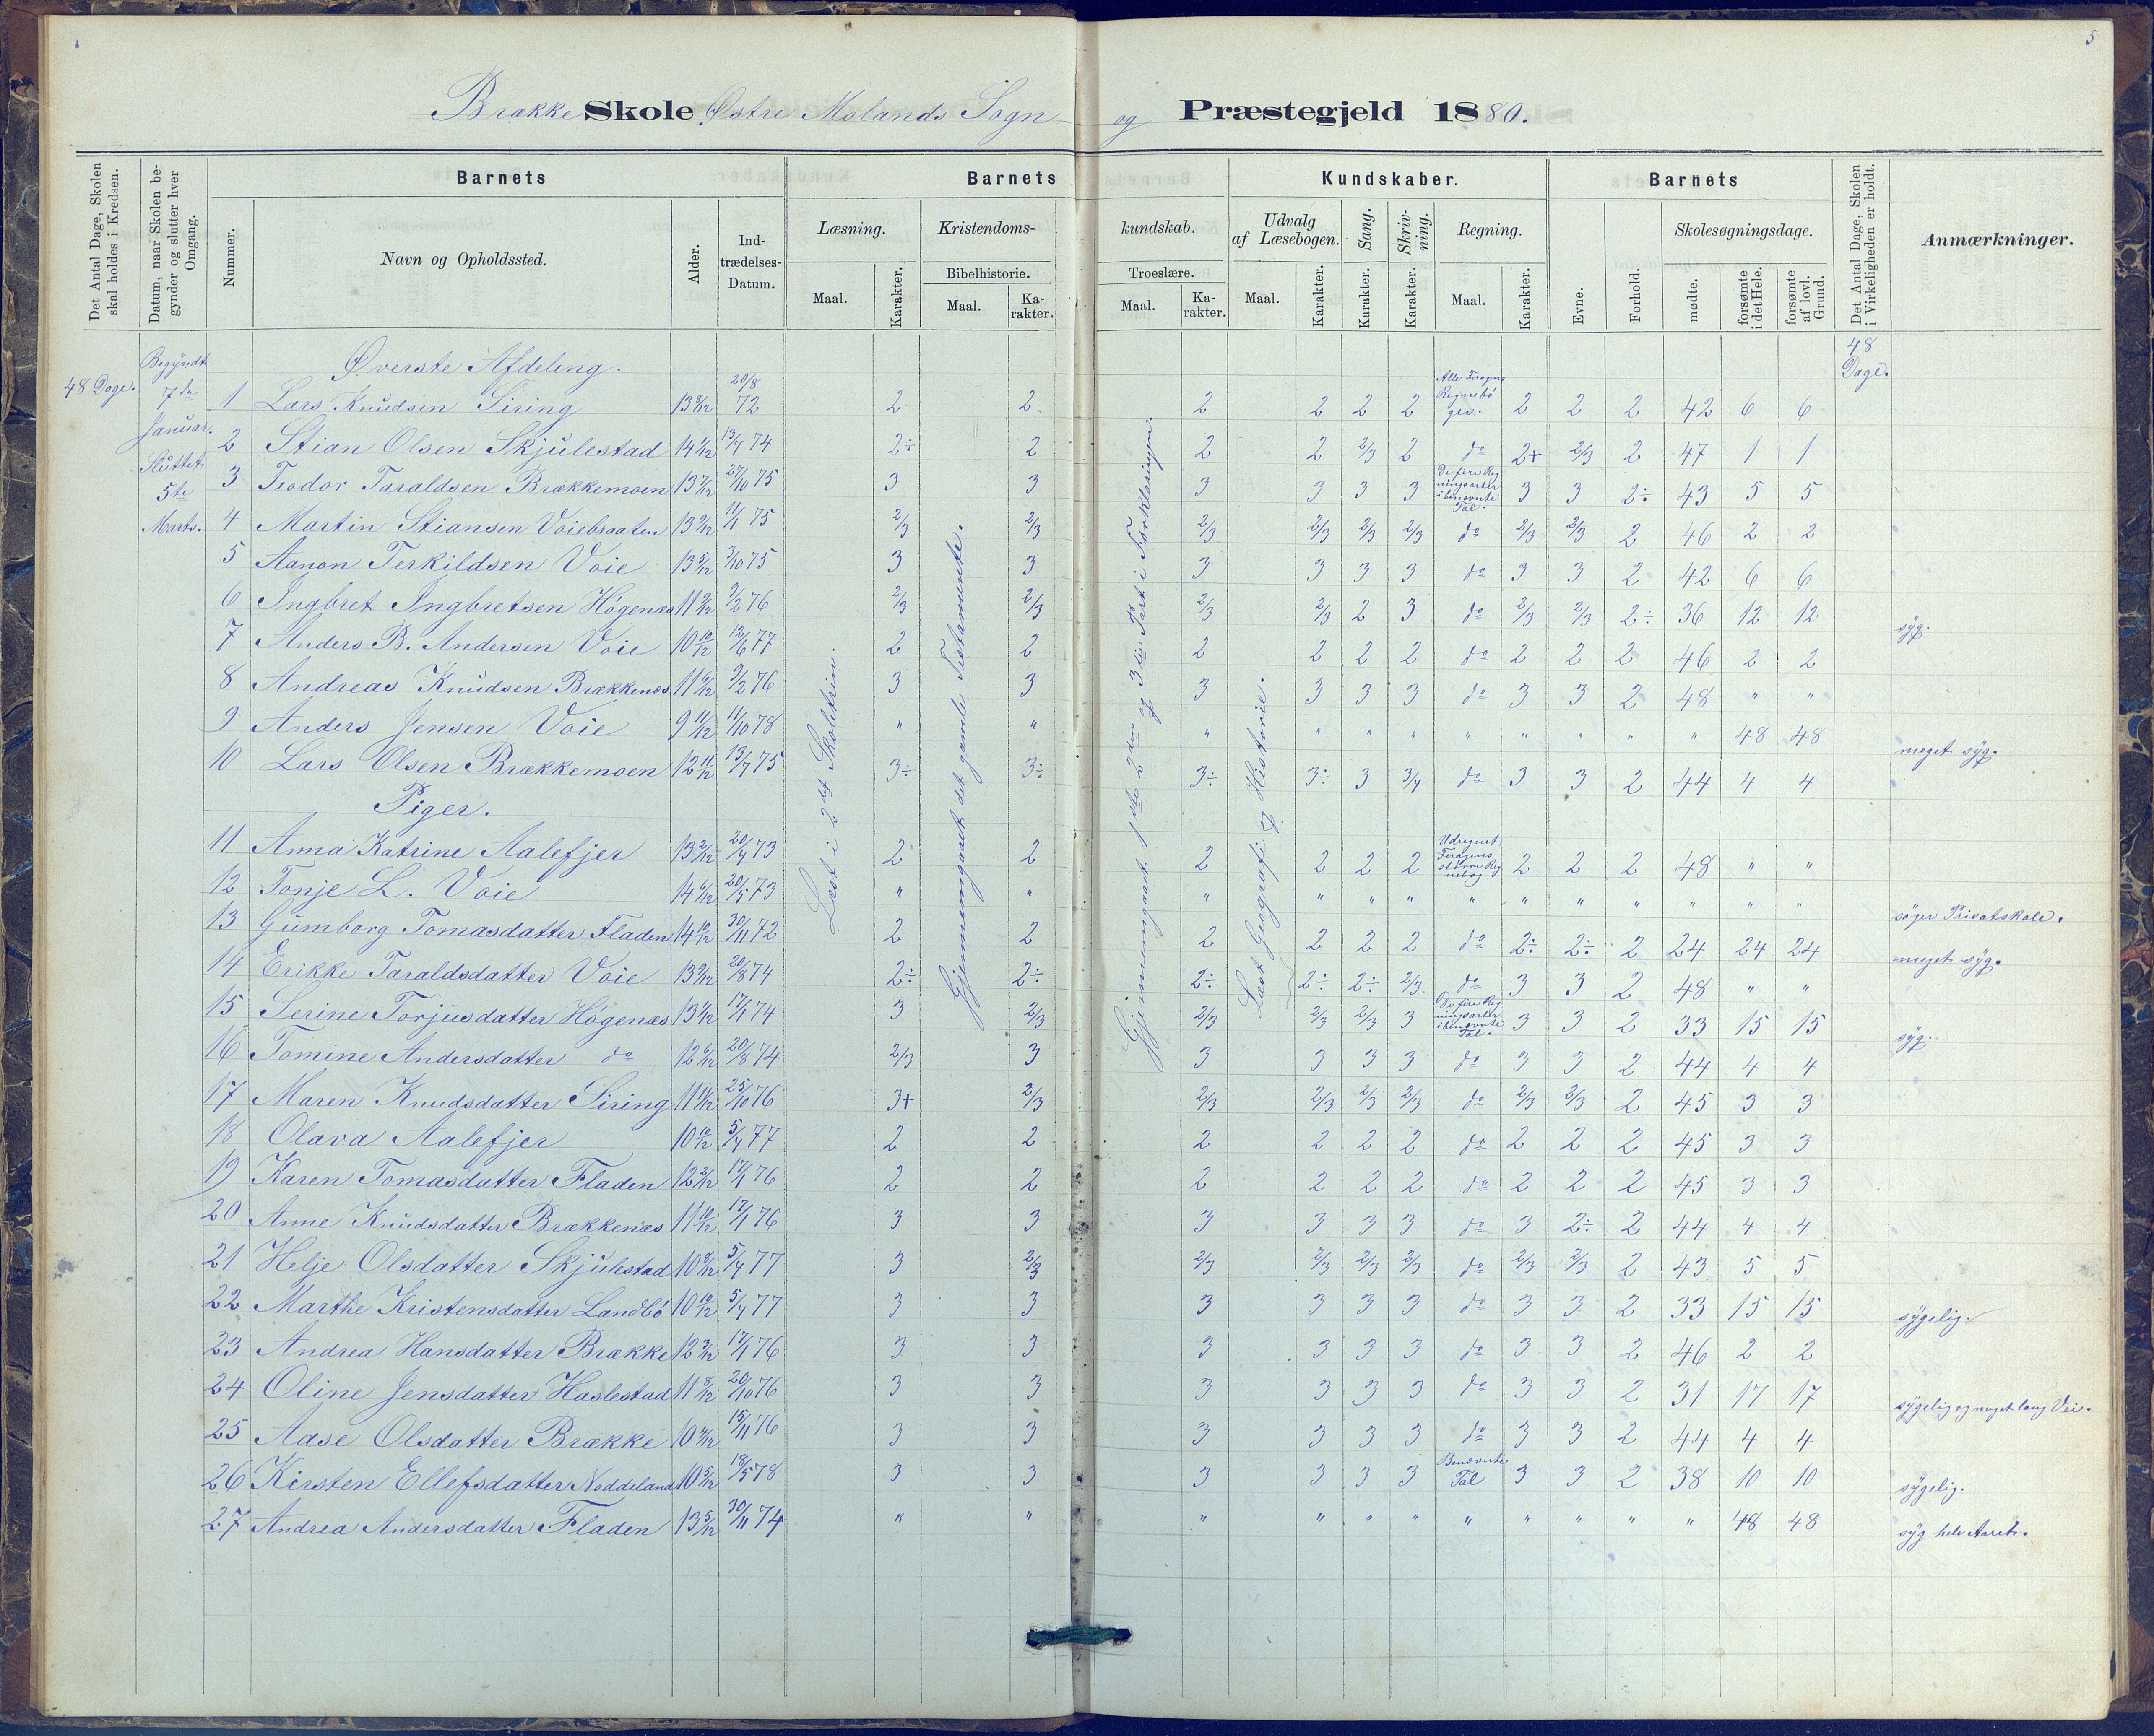 5
Brække Skole Østre Molands Sogn og Præstegjeld 1880.
Det Antal Dage, Skolen skal holdes i Kredsen.
Datum, naar Skolen begynder og slutter hver Omgang.
Barnets
Nummer.
Navn og Opholdssted.
Alder.
Indtrædelses-Datum.
Barnets Kundskaber.
Læsning.
Maal.
Karakter.
Kristendoms-kundskab.
Bibelhistorie.
Maal.
Karakter.
Troeslære.
Maal.
Karakter.
Udvalg af Læsebogen.
Maal.
Karakter.
Sang.
Karakter.
Skrivning.
Karakter.
Regning.
Maal.
Karakter.
Barnets
Evne.
Forhold.
Skolesøgningsdage.
mødte.
forsømte i det Hele.
forsømte af lovl. Grund.
Det Antal Dage, Skolen i Virkeligheden er holdt.
Anmærkninger.
48 Dage.
Begyndt 7de Januar. Sluttet 5te Marts.
48 Dage.
Læst i 2det Skoletrin.
Gjennemgaaet det gamle Testamente.
Gjennemgaaet 1ste 2den og 3die Part i Forklaringen.
Læst Geografi og Historie.
Øverste Afdeling.
1 Lars Knudsen Siring 13 8/12 20/8 72 2 2 2 2 2 2 Alle Regnebøger. 2 2 2 42 6 6
2 Stian Olsen Skjulestad 14 1/12 13/7 74 2÷ 2 2 2 2/3 2 do 2+ 2/3 2 47 1 1
3 Teodor Taraldsen Brækkemoen 27/10 75 3 3 3 3 3 3 De fire Regningsarter i benævnte Tal. 3 3 2÷ 43 5 5
4 Martin Stiansen Voiebraaten 11/1 75 2/3 2/3 2/3 2/3 2/3 2/3 do 2/3 2/3 2 46 2 2
5 Aanon Terkildsen Voie 13 5/12 3/10 75 3 3 3 3 3 3 do 3 3 2 42 6 6
6 Ingbret Ingbretsen Høgenæs 9/2 76 2/3 2/3 2/3 2/3 2 3 do 2/3 2/3 2÷ 36 12 12 syg.
7 Anders B. Andersen Voie 10 10/12 12/6 77 2 2 2 2 2 2 do 2 2 2 46 2 2
8 Andreas Knudsen Brækkenæs 9/2 76 3 3 3 3 3 3 do 3 3 2 48 " "
9 Anders Jensen Voie 9 11/12 11/10 78 " " " " " " " " " " " 48 48 meget syg.
10 Lars Olsen Brækkemoen 12 11/12 13/7 75 3÷ 3÷ 3÷ 3÷ 3 3/4 do 3 3 2 44 4 4
Piger.
11 Anna Katrine Aalefjer 13 2/12 20/4 73 2 2 2 2 2 2 Udregnet større Regnebog 2 2 2 48 " "
12 Tonje L. Voie 14 6/12 20/5 73 " " " " " " " " " " " " " søger Privatskole.
13 Gumborg Tomasdatter Fladen 14 10/12 30/11 72 2 2 2 2 2 2 do 2÷ 2÷ 2 24 24 24 meget syg.
14 Erikke Taraldsdatter Voie 13 9/12 20/8 74 2÷ 2÷ 2÷ 2÷ 2÷ 2/3 do 3 3 2 48 " "
15 Serine Torjusdatter Høgenæs 17/1 74 3 2/3 2/3 2/3 2/3 3 De fire Regningsarter i benævnte Tal. 3 3 2 33 15 15 syg.
16 Tomine Andersdatter do 12 6/12 20/8 74 2/3 3 3 3 3 3 do 3 3 2 44 4 4
17 Maren Knudsdatter Siring 25/10 76 3+ 2/3 2/3 2/3 2/3 2/3 do 2/3 2/3 2 45 3 3
18 Olava Aalefjer 10 10/12 5/4 77 2 2 2 2 2 2 do 2 2 2 45 3 3
19 Karen Tomasdatter Fladen 12 2/12 17/1 76 2 2 2 2 2 2 do 2 2 2 45 3 3
20 Anne Knudsdatter Brækkenæs 11 10/12 17/1 76 3 3 3 3 3 3 do 3 2÷ 2 44 4 4
21 Helje Olsdatter Skjulestad 10 8/12 5/4 77 3 2/3 2/3 2/3 2/3 2/3 do 2/3 2/3 2 43 5 5
22 Marthe Kristensdatter Landbö 10 10/12 5/4 77 3 3 3 3 3 3 do 3 3 2 33 15 15 sygelig.
23 Andrea Hansdatter Brække 12 3/12 17/1 76 3 3 3 3 3 3 do 3 3 2 46 2 2
24 Oline Jensdatter Haslestad 11 8/12 20/10 76 3 3 3 3 3 3 do 3 3 2 31 17 17 sygelig og meget lang Vei.
25 Aase Olsdatter Brække 15/11 76 3 3 3 3 3 3 do 3 3 2 44 4 4
26 Kirsten Ellefsdatter Noddeland 10 5/12 18/5 78 3 3 3 3 3 3 Benævnte Tal 3 3 2 38 10 10 sygelig.
27 Andrea Andersdatter Fladen 13 5/12 30/11 74 " " " " " " " " " " " 48 48 syg hele Aaret.